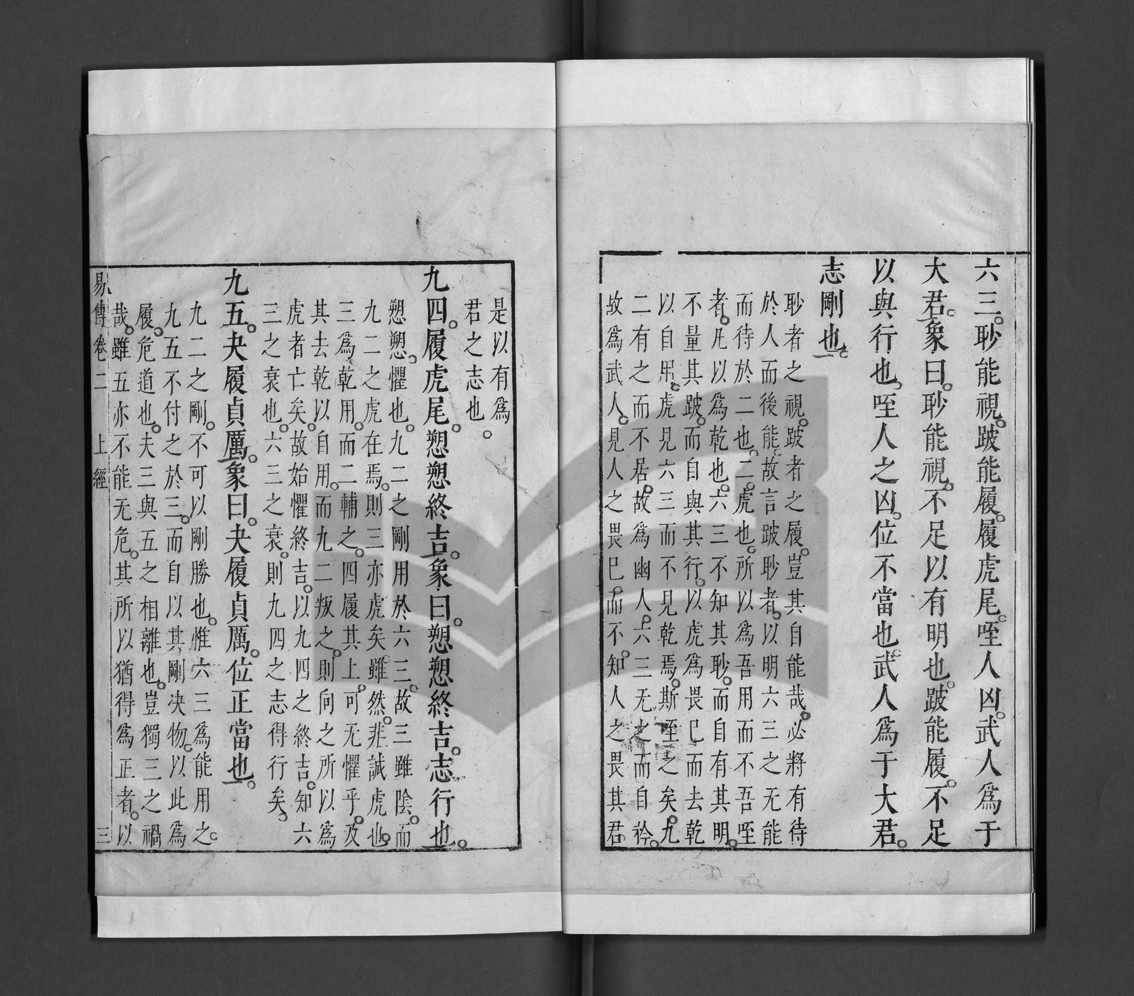 六三。眇能視。跛能履。履虎尾。咥人凶。武人爲于
大君。象曰。眇能視。不足以有明也。跛能履。不足
以與行也。咥人之凶。位不當也。武人爲于大君。
志剛也。
眇者之視。跛者之履。豈其自能哉。必將有待
於人而後能。故言跛眇者。以明六三之无能
而待於二也。二。虎也。所以爲吾用而不吾咥
者。凡以爲乾也。六三不知其眇。而自有其明。
不量其跛。而自與其行。以虎爲畏己而去乾
以自用。虎見六三而不見乾焉。斯咥之矣。九
二有之而不居。故爲幽人。六三无之而自矜。
故爲武人。見人之畏己。而不知人之畏其君
是以有爲
君之志也。
九四。履虎尾。愬愬終吉。象曰。愬愬終吉。志行也。
愬愬。懼也。九二之剛用於六三。故三雖陰。而
九二之虎在焉。則三亦虎矣。雖然。非誠虎也。
三爲乾用。而二輔之。四履其上。可无懼乎。及
其去乾以自用。而九二叛之。則向之所以爲
虎者亡矣。故始懼終吉。以九四之終吉。知六
三之衰也。六三之衰。則九四之志得行矣。
九五。夬履貞厲。象曰。夬履貞厲。位正當也。
九二之剛。不可以剛勝也。惟六三爲能用之。
九五不付之於三。而自以其剛決物。以此爲
履。危道也。夫三與五之相離也。豈獨三之禍
哉。雖五亦不能无危。其所以猶得爲正者。以
易傳卷二 上經 三